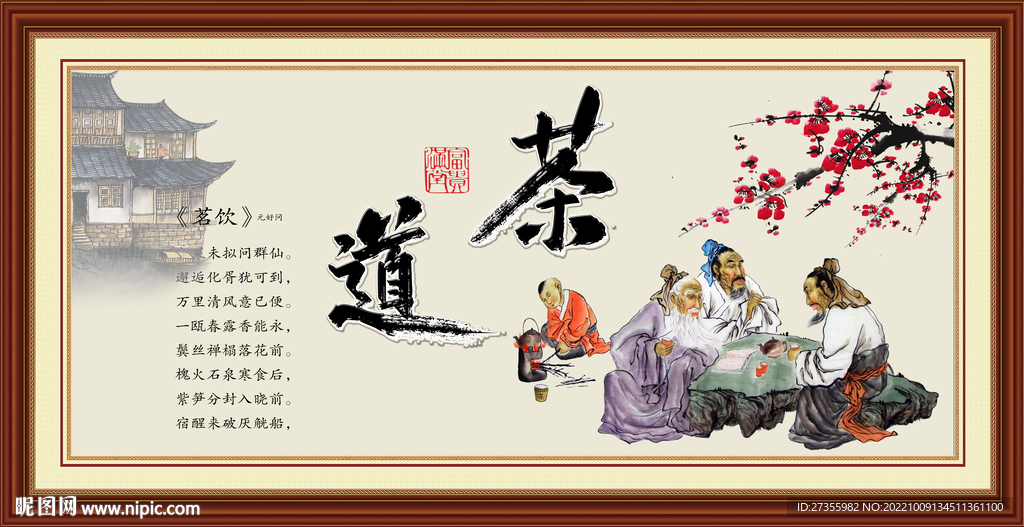 茶
道
富貴
滿堂
《茗饮》元好问
未拟问群仙。
邂逅化胥犹可到，
万里清风意已便。
一瓯春露香能永，
鬓丝禅榻落花前。
槐火石泉寒食后，
紫笋分封入晓前。
宿醒来破厌觥船，
昵图网 www.nipic.com
ID:27355982 NO:20221009134511361100